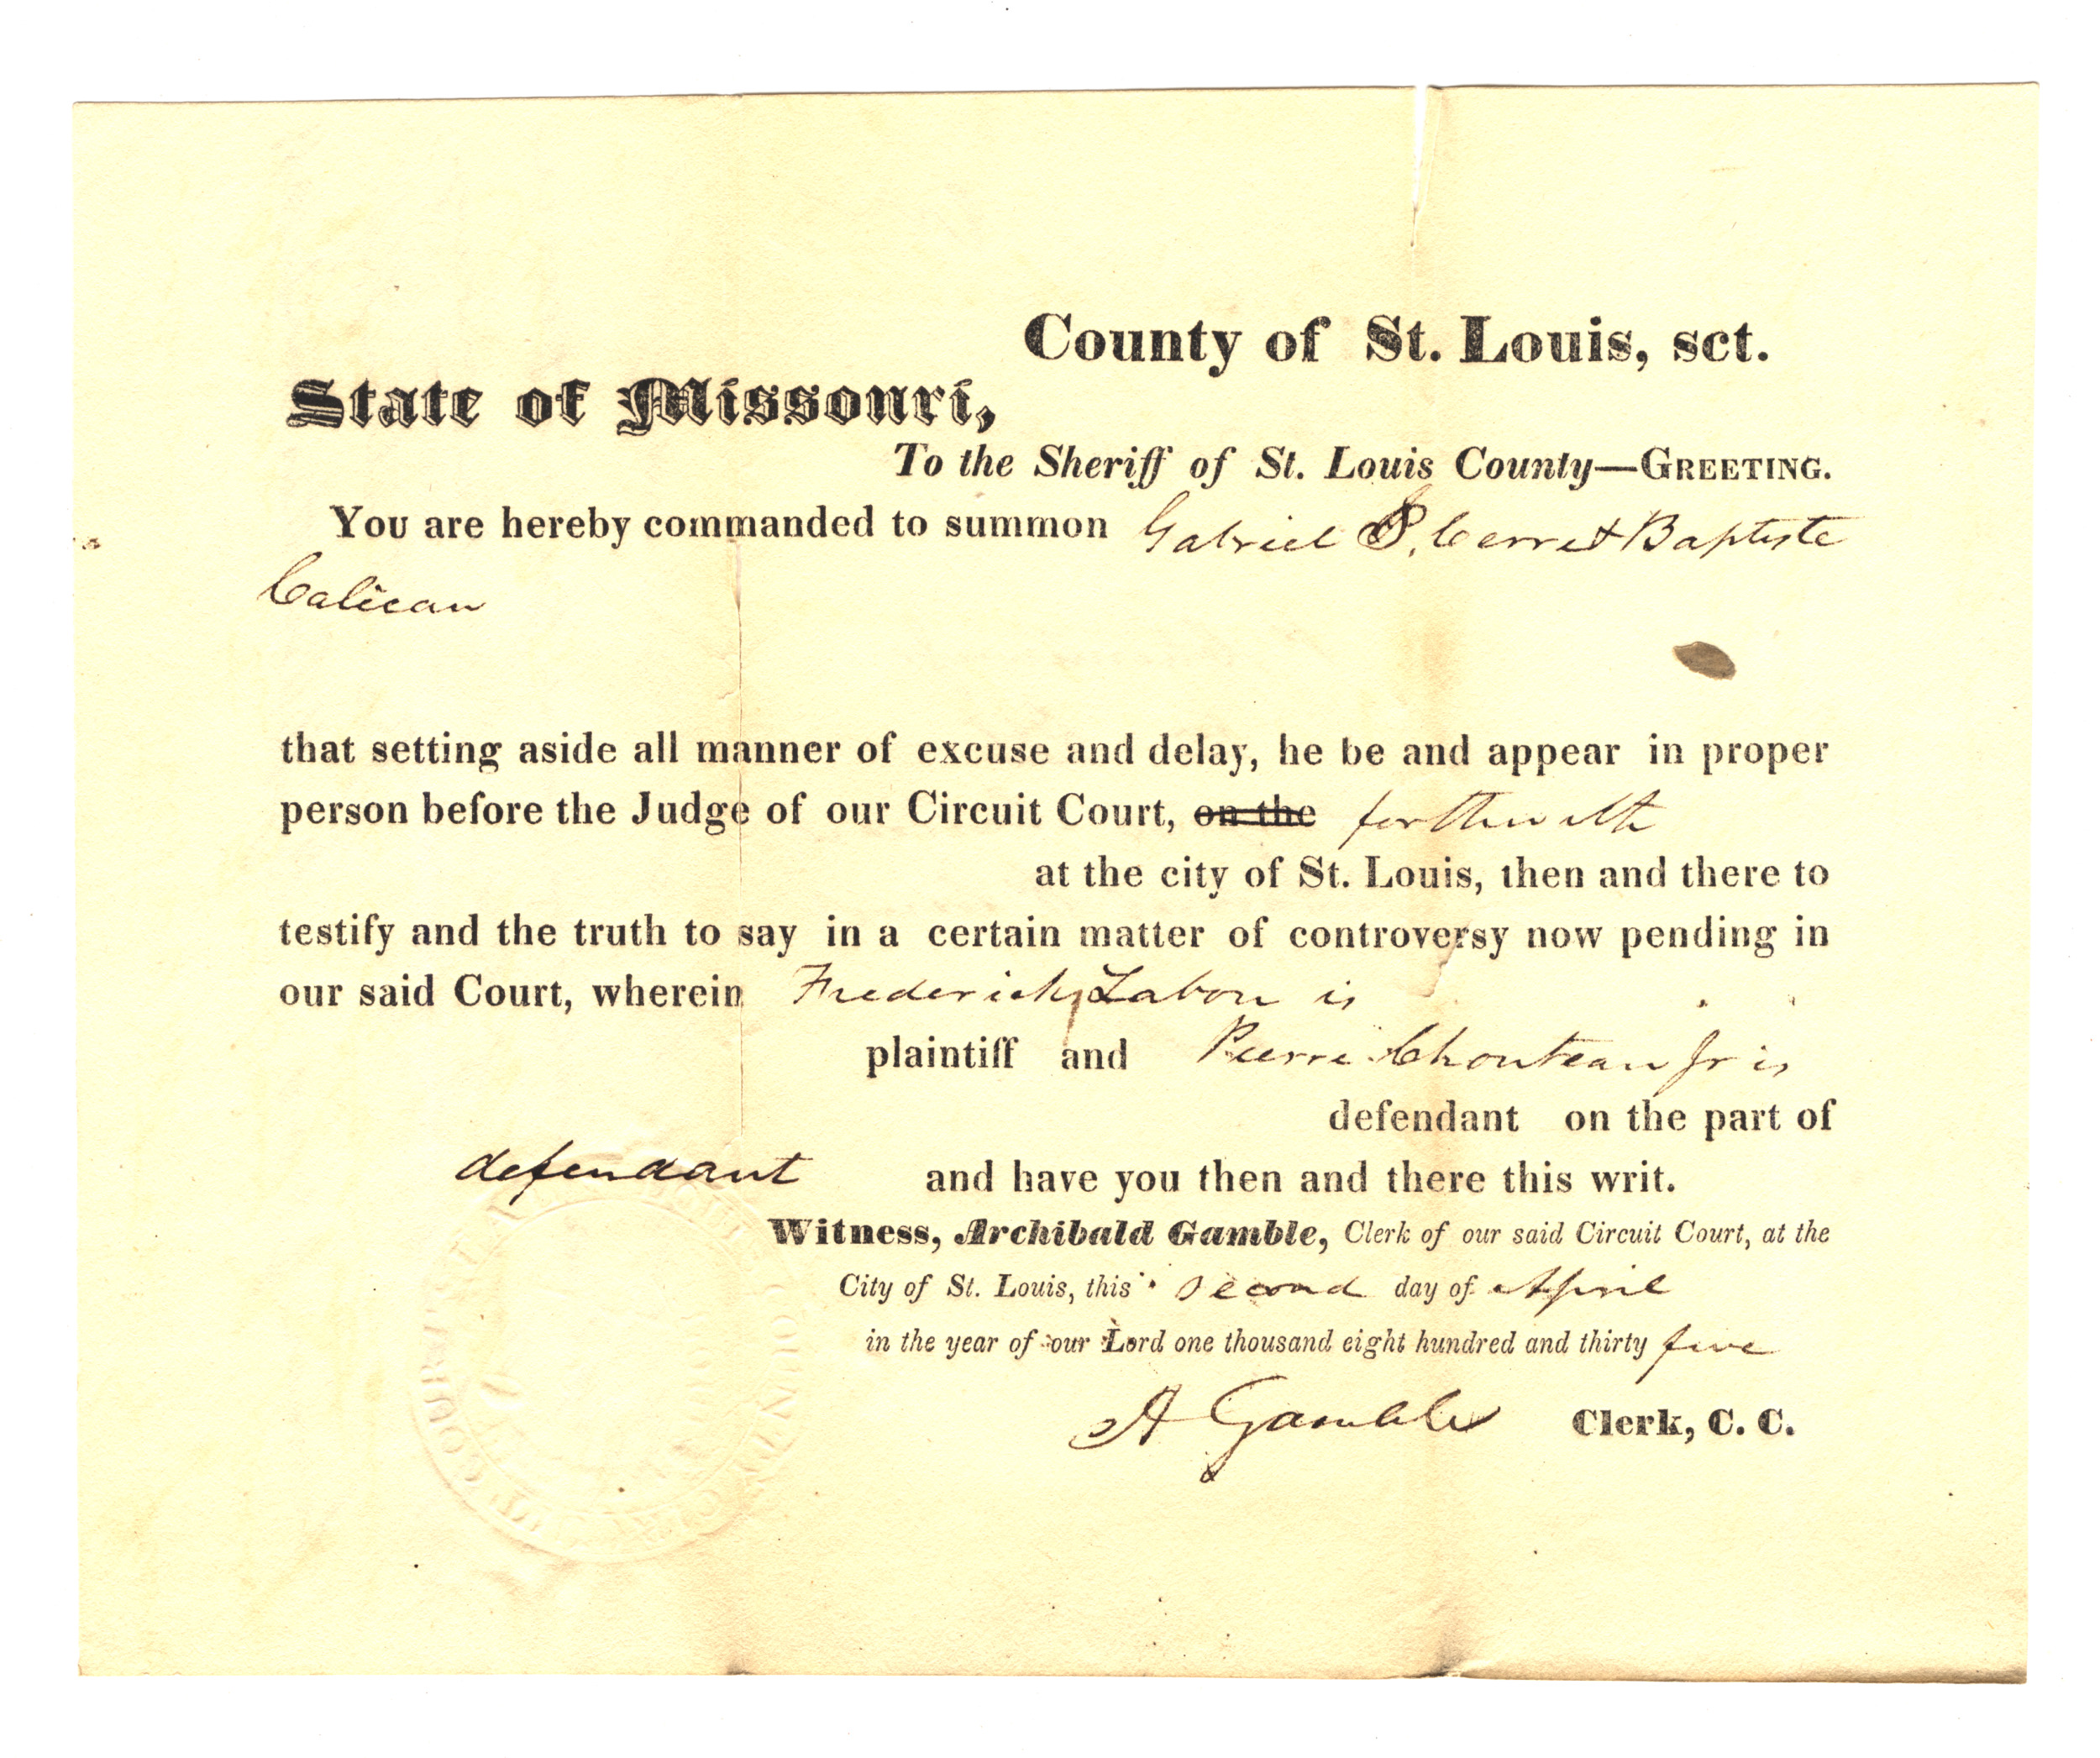 County of St. Louis, sct.
State of Missouri,
To the Sheriff of St. Louis County—GREETING.
You are hereby commanded to summon Gabriel S. Cerré & Baptiste
Calican
that setting aside all manner of excuse and delay, he be and appear in proper
person before the Judge of our Circuit Court, on the forthwith
at the city of St. Louis, then and there to
testify and the truth to say in a certain matter of controversy now pending in
our said Court, wherein Frederick Labon is
plaintiff and Pierre Chouteau Jr is
defendant on the part of
defendant and have you then and there this writ.
Witness, Archibald Gamble, Clerk of our said Circuit Court, at the
City of St. Louis, this second day of April
in the year of our Lord one thousand eight hundred and thirty five
A Gamble Clerk, C. C.